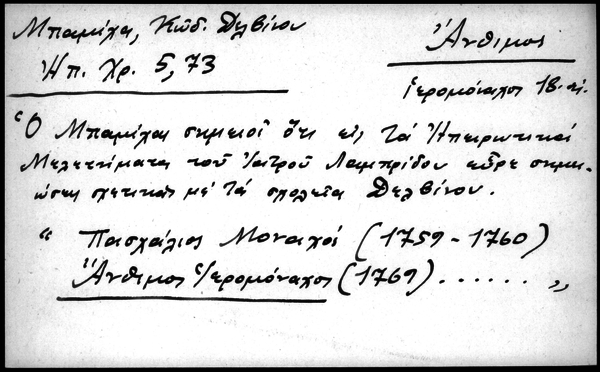 Μπαμίχα, Κώδ. Δελβίνου
Ἠπ. Χρ. 5, 73
Ἄνθιμος
ἱερομόναχος 18. αἰ.
Ὁ Μπαμίχας σημειοῖ ὅτι εἰς τὰ Ἠπειρωτικὰ
Μελετήματα τοῦ ἰατροῦ Λαμπρίδου εὗρε σημει-
ώσεις σχετικὰς μὲ τὰ σχολεῖα Δελβίνου.
“ Πασχάλιος Μοναχός (1759 - 1760)
Ἄνθιμος Ἱερομόναχος (1769) . . . . . . „